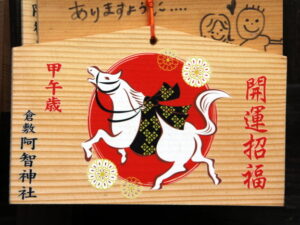 ありますように....
開運招福
甲午歳
倉敷
阿智神社